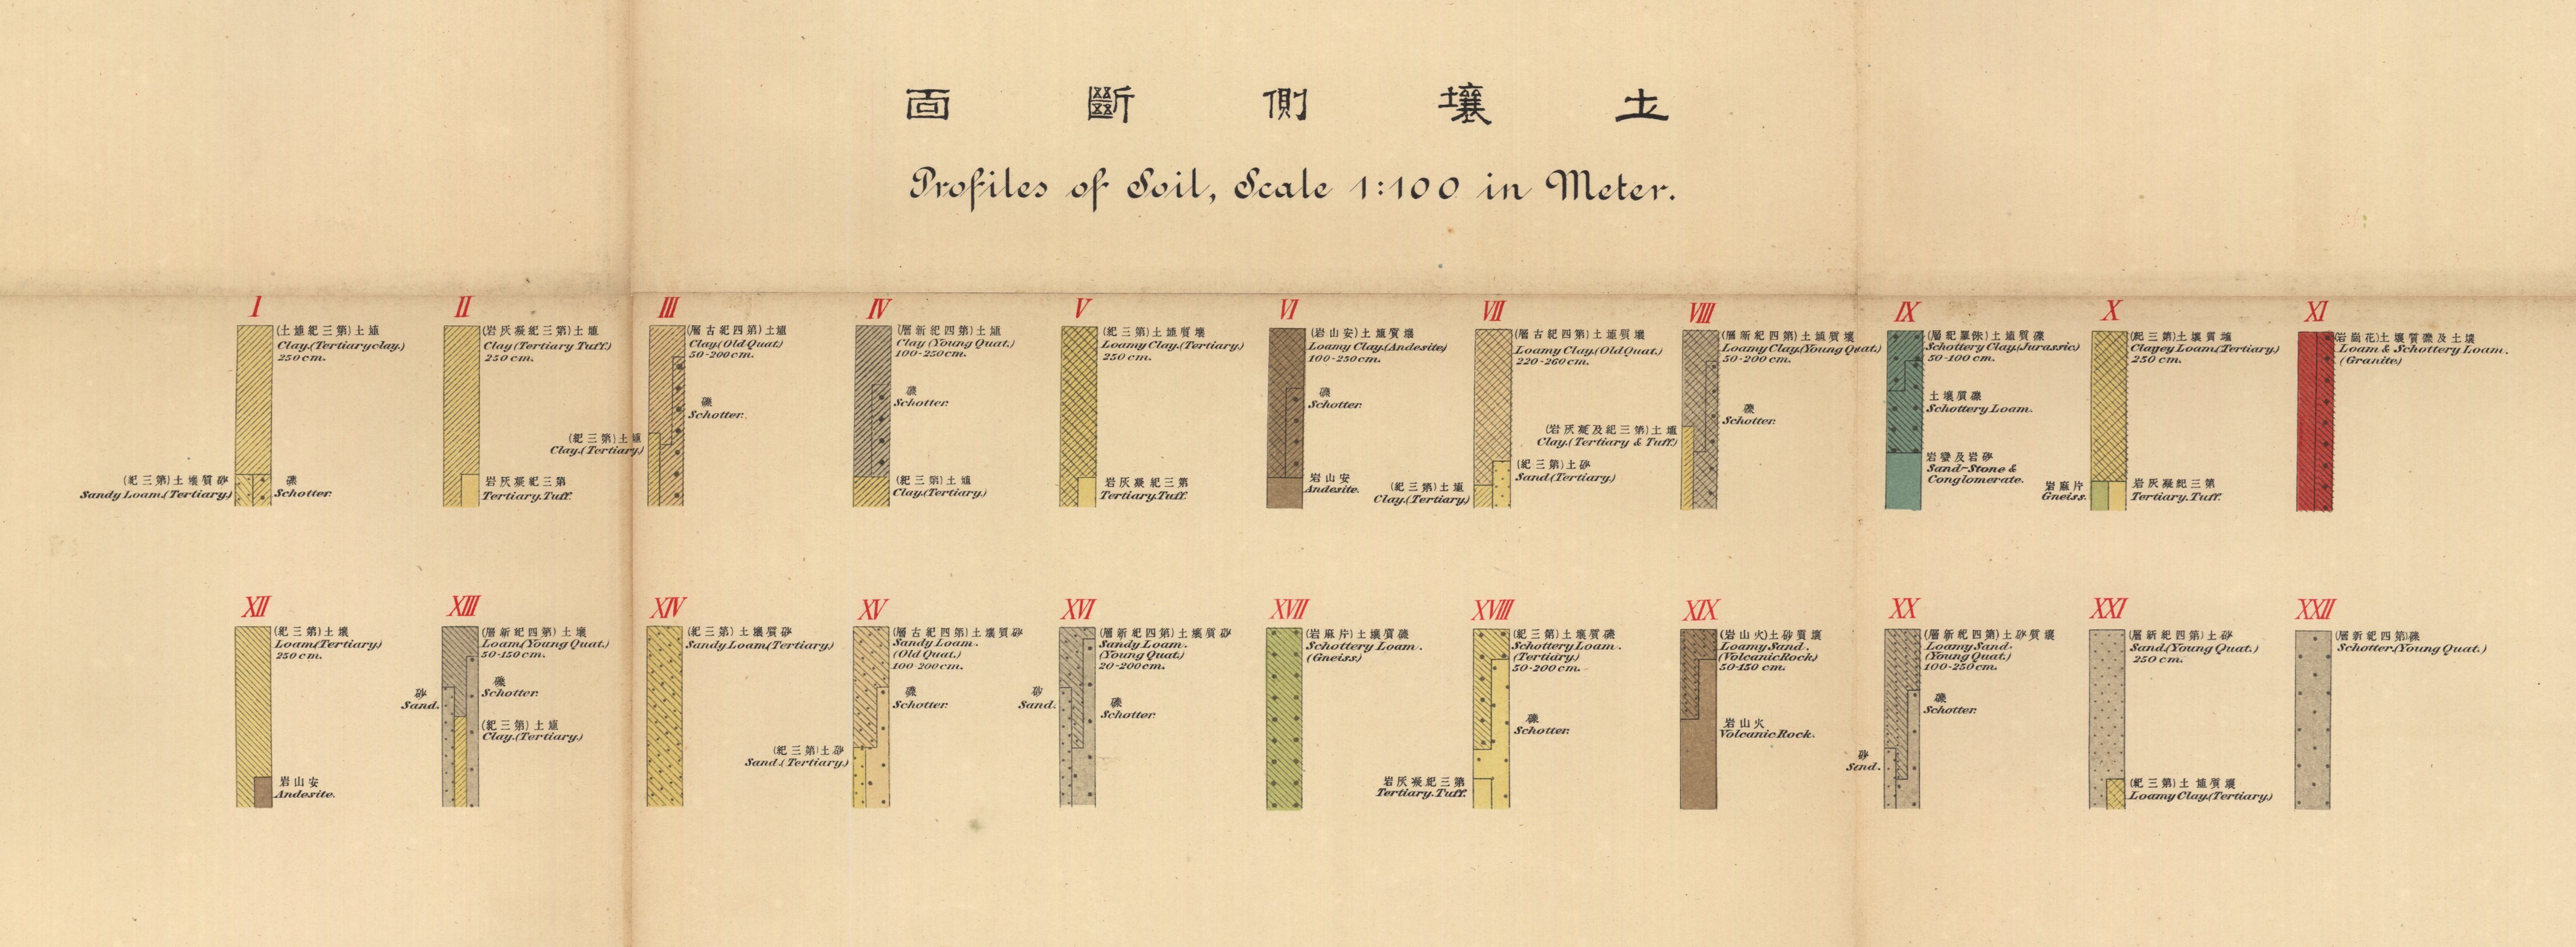 土壤側斷面
Profiles of Soil, Scale 1:100 in Meter.
I
埴土(第三紀埴土)
Clay.(Tertiary clay.)
250 cm.
砂質壤土(第三紀)
Sandy Loam.(Tertiary.)
礫
Schotter.
II
埴土(第三紀凝灰岩)
Clay (Tertiary Tuff.)
250 cm.
第三紀凝灰岩
Tertiary.Tuff.
III
埴土(第四紀古層)
Clay.(Old Quat.)
50-200 cm.
礫
Schotter.
埴土(第三紀)
Clay.(Tertiary.)
IV
埴土(第四紀新層)
Clay (Young Quat.)
100-250 cm.
礫
Schotter.
埴土(第三紀)
Clay.(Tertiary.)
V
壤質埴土(第三紀)
Loamy Clay.(Tertiary.)
250 cm.
第三紀凝灰岩
Tertiary.Tuff.
VI
壤質埴土(安山岩)
Loamy Clay.(Andesite)
100-250 cm.
礫
Schotter.
安山岩
Andesite.
VII
壤質埴土(第四紀古層)
Loamy Clay.(Old Quat.)
220-260 cm.
砂土(第三紀)
Sand.(Tertiary.)
埴土(第三紀)
Clay.(Tertiary.)
VIII
壤質埴土(第四紀新層)
Loamy Clay.(Young Quat.)
50-200 cm.
礫
Schotter.
埴土(第三紀及凝灰岩)
Clay.(Tertiary & Tuff.)
IX
礫質埴土(侏羅紀層)
Schottery Clay.(Jurassic.)
50-100 cm.
礫質壤土
Schottery Loam.
砂岩及蠻岩
Sand-Stone &
Conglomerate.
X
埴質壤土(第三紀)
Clayey Loam.(Tertiary.)
250 cm.
片麻岩
Gneiss.
第三紀凝灰岩
Tertiary.Tuff.
XI
壤土及礫質壤土(花崗岩)
Loam & Schottery Loam.
(Granite)
XII
壤土(第三紀)
Loam.(Tertiary.)
250 cm.
安山岩
Andesite.
XIII
壤土(第四紀新層)
Loam.(Young Quat.)
50-150 cm.
礫
Schotter.
砂
Sand.
埴土(第三紀)
Clay.(Tertiary.)
XIV
砂質壤土(第三紀)
Sandy Loam.(Tertiary.)
XV
砂質壤土(第四紀古層)
Sandy Loam.
(Old Quat.)
100-200 cm.
礫
Schotter.
砂土(第三紀)
Sand.(Tertiary.)
XVI
砂質壤土(第四紀新層)
Sandy Loam.
(Young Quat.)
20-200 cm.
砂
Sand.
礫
Schotter.
XVII
礫質壤土(片麻岩)
Schottery Loam.
(Gneiss.)
XVIII
礫質壤土(第三紀)
Schottery Loam.
(Tertiary.)
50-200 cm.
礫
Schotter.
第三紀凝灰岩
Tertiary.Tuff.
XIX
壤質砂土(火山岩)
Loamy Sand.
(Volcanic Rock.)
50-150 cm.
火山岩
Volcanic Rock.
XX
壤質砂土(第四紀新層)
Loamy Sand.
(Young Quat.)
100-250 cm.
礫
Schotter.
砂
Sand.
XXI
砂土(第四紀新層)
Sand.(Young Quat.)
250 cm.
壤質埴土(第三紀)
Loamy Clay.(Tertiary.)
XXII
礫(第四紀新層)
Schotter.(Young Quat.)